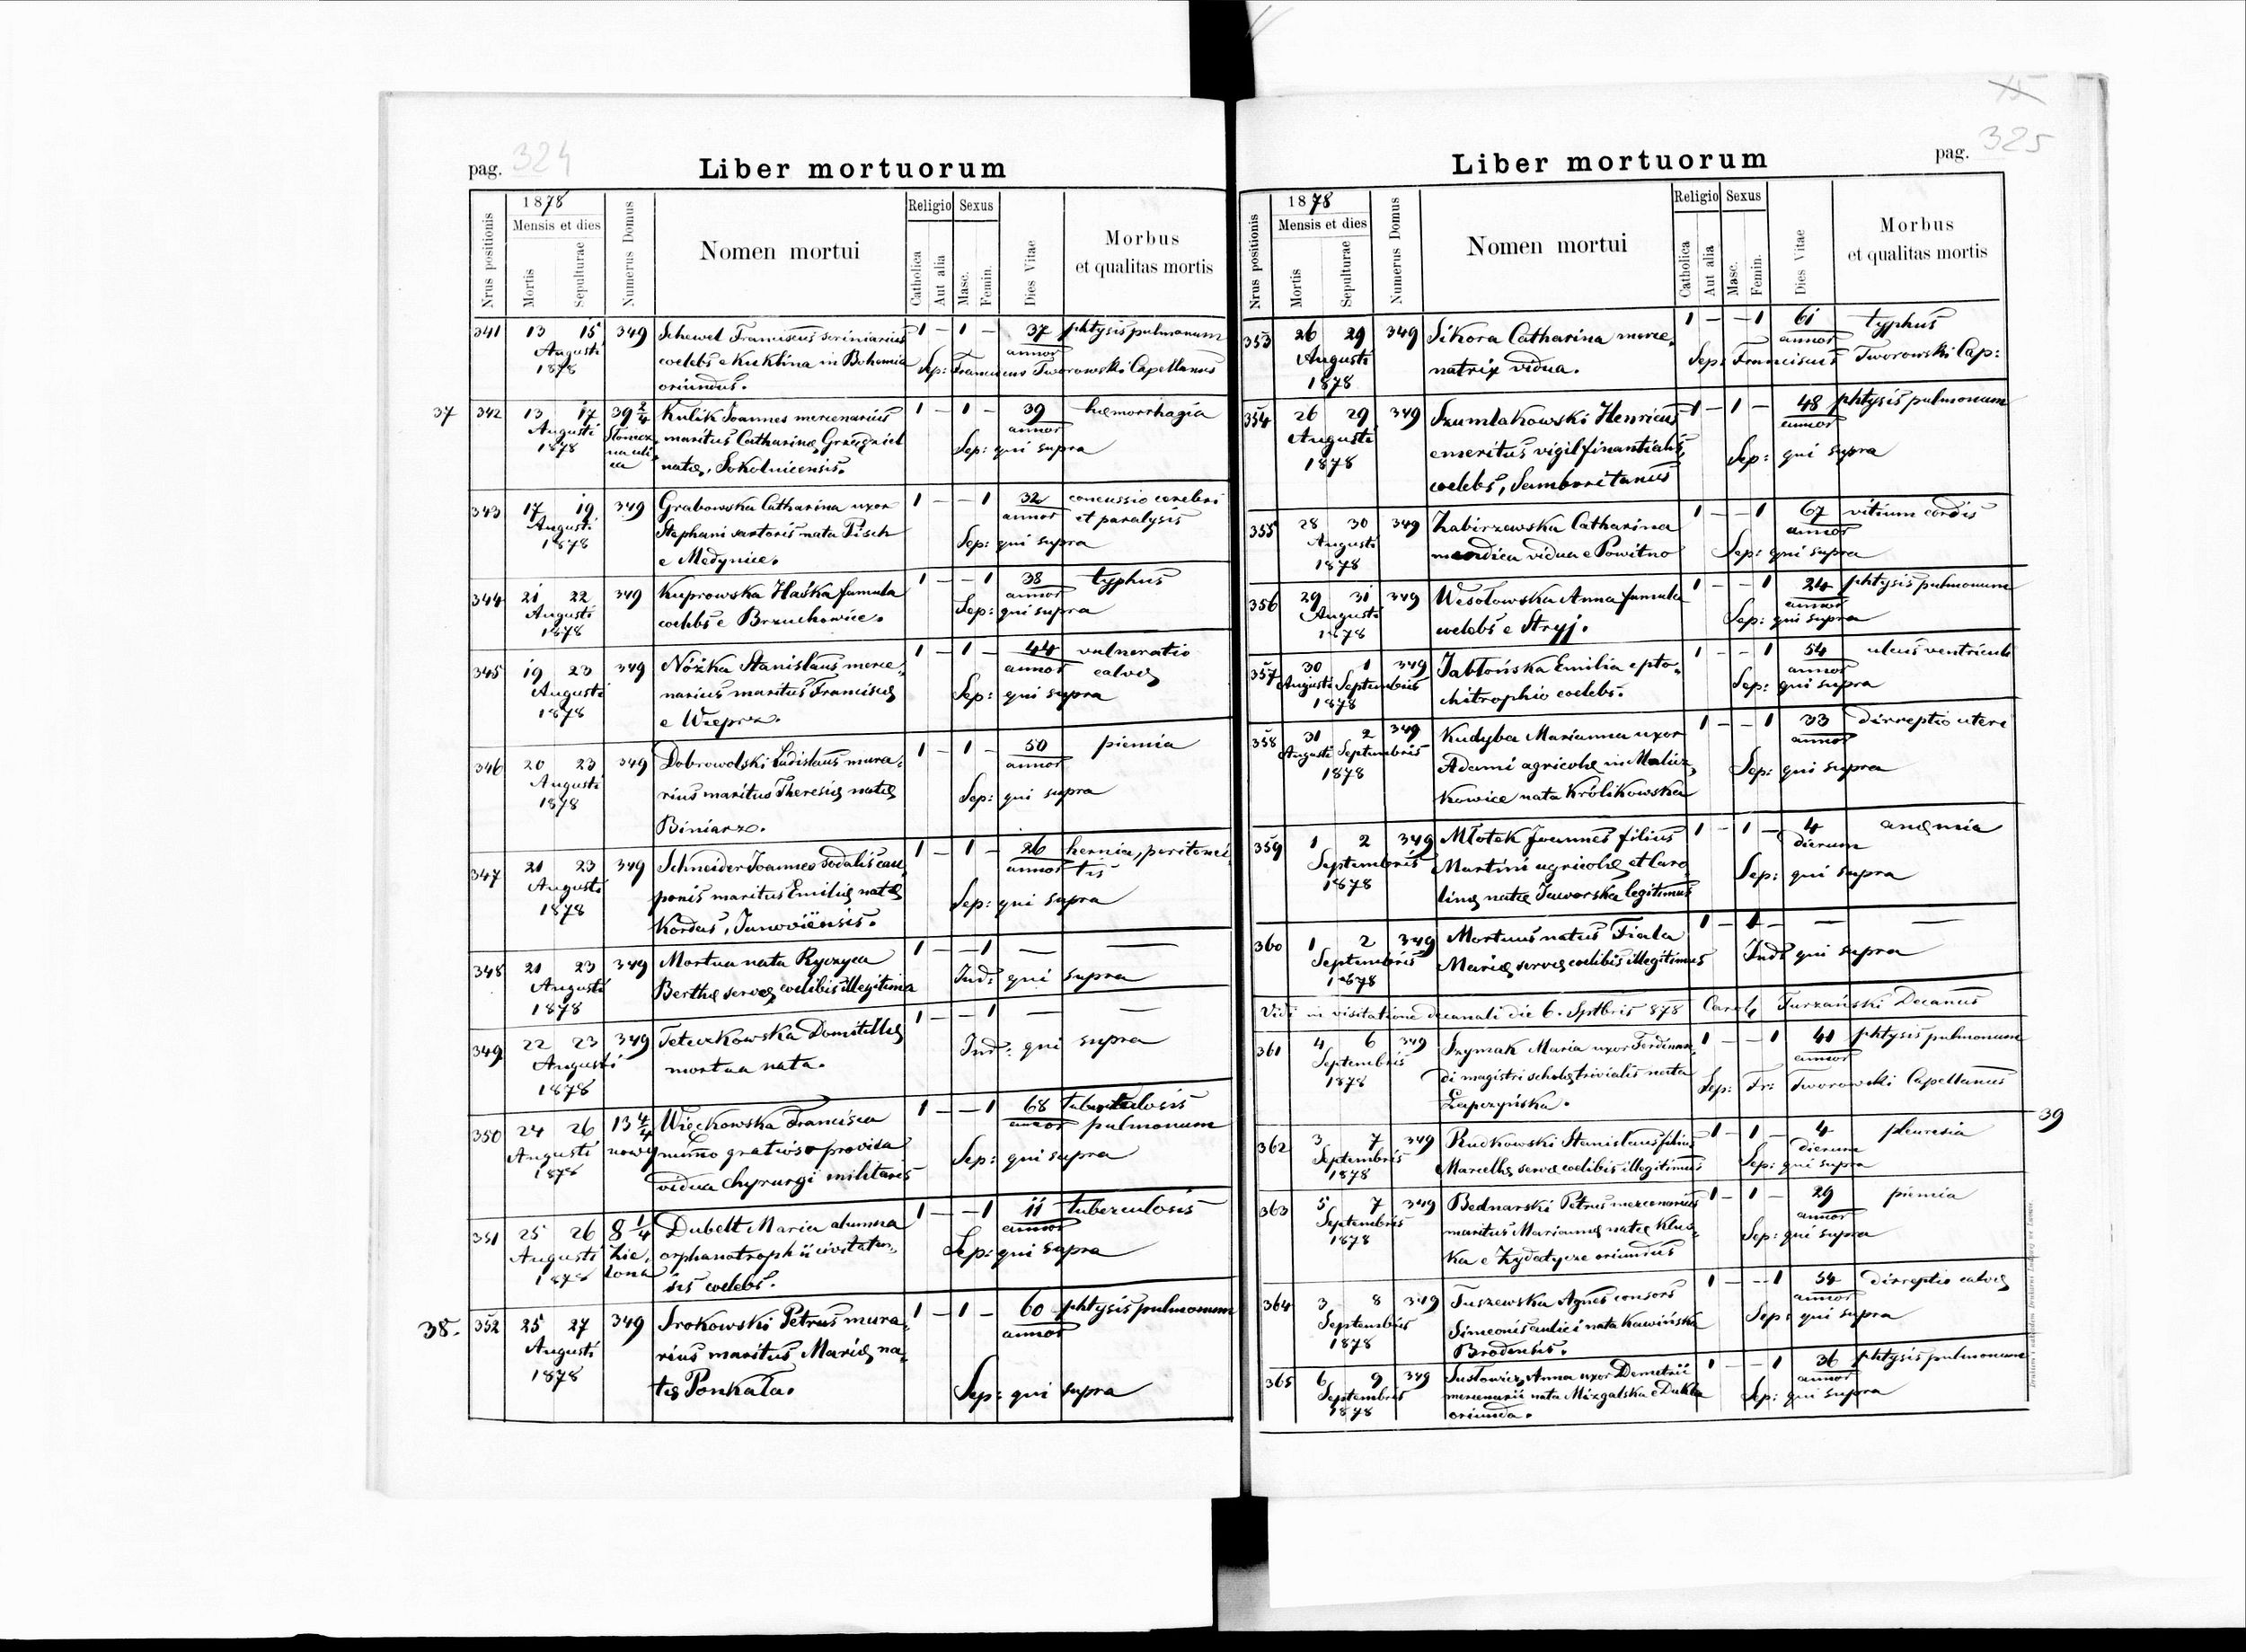 pag. 324
Liber mortuorum
Nrus positionis
1878
Mensis et dies
Mortis
Sepulturae
Numerus Domus
Nomen mortui
Religio
Catholica
Aut alia
Sexus
Masc.
Femin.
Dies Vitae
Morbus
et qualitas mortis
341 13 15 349 Schewel Franciscus scriniarius 1 – 1 – 37 phtysis pulmonum
Augusti coelebs e Kuklina in Bohemia annor
1878 oriundus. Sep: Franciscus Tworowski Capellanus
37 342 13 17 39 2/4 Kulik Joannes mercenarius 1 – 1 – 39 hæmorrhagia
Augusti maritus Catharinæ Grzegziel annor
1878 natæ, Sokolnicensis. Sep: qui supra
343 17 19 349 Grabowska Catharina uxor 1 – – 1 32 concussio cerebri
Augusti Stephani sartoris nata Pisch annor et paralysis
1878 e Medynice. Sep: qui supra
344 21 22 349 Kuprowska Haśka famula 1 – – 1 38 typhus
Augusti coelebs e Brzuchowice. annor
1878 Sep: qui supra
345 19 23 349 Nóżka Stanislaus merce- 1 – 1 – 44 vulneratio
Augusti narius maritus Franciscæ annor calvæ
1878 e Wieprz. Sep: qui supra
346 20 23 349 Dobrowolski Ladislaus mura- 1 – 1 – 50 piemia
Augusti rius maritus Theresiæ natæ annor
1878 Biniarz. Sep: qui supra
347 21 23 349 Schneider Joannes sodalis cau- 1 – 1 – 26 hernia, peritonei-
Augusti ponis maritus Emiliæ natæ annor tis
1878 Kordas, Janoviensis. Sep: qui supra
348 21 23 349 Mortua nata Ryczyca 1 – – 1 — —
Augusti Berthæ servæ coelibis illegitima Ind: qui supra
1878
349 22 23 349 Teteczkowska Domitillæ 1 – – 1 — —
Augusti mortua nata. Ind: qui supra
1878
350 24 26 13 4/4 Więckowska Francisca 1 – – 1 68 tuberculosis
Augusti nowy gratioso provisa annor pulmonum
1878 vidua chyrurgi militaris Sep: qui supra
351 25 26 8 1/4 Dubelt Maria alumna 1 – – 1 11 tuberculosis
Augusti Zie- orphanotrophii civitaten- annor
1878 lona sis coelebs. Sep: qui supra
38. 352 25 27 349 Srokowski Petrus mura- 1 – 1 – 60 phtysis pulmonum
Augusti rius maritus Mariæ na- annor
1878 tæ Ponkała. Sep: qui supra
325
Liber mortuorum
pag.
Nrus positionis
1878
Mensis et dies
Mortis
Sepulturae
Numerus Domus
Nomen mortui
Religio
Catholica
Aut alia
Sexus
Masc.
Femin.
Dies Vitae
Morbus
et qualitas mortis
353 26 29 349 Sikora Catharina merce- 1 – – 1 61 typhus
Augusti natrix vidua. annor
1878 Sep: Franciscus Tworowski Cap:
354 26 29 349 Szumlakowski Henricus 1 – 1 – 48 phtysis pulmonum
Augusti emeritus vigil finantialis, annor
1878 coelebs, Samboritanus Sep: qui supra
355 28 30 349 Zabirzewska Catharina 1 – – 1 67 vitium cordis
Augusti mendica vidua e Powitno annor
1878 Sep: qui supra
356 29 31 349 Wesołowska Anna famula 1 – – 1 24 phtysis pulmonum
Augusti coelebs e Stryj. annor
1878 Sep: qui supra
357 30 1 349 Jabłońska Emilia e pto- 1 – – 1 54 ulcus ventriculi
Augusti Septembris chitrophio coelebs. annor
1878 Sep: qui supra
358 31 2 349 Kudyba Marianna uxor 1 – – 1 33 dirreptio uteri
Augusti Septembris Adami agricolæ in Malicz- annor
1878 kowice nata Królikowska Sep: qui supra
359 1 2 349 Młotek Joannes filius 1 – 1 – 4 anæmia
Septembris Martini agricolæ et Caro- dierum
1878 linæ natæ Jaworska legitimus Sep: qui supra
360 1 2 349 Mortuus natus Fiala 1 – 1 – — —
Septembris Mariæ servæ coelibis illegitimus Ind: qui supra
1878
Vidi in visitatione decanali die 6. Sptbris 878 Carol Turzański Decanus
361 4 6 349 Szymak Maria uxor Ferdinan- 1 – – 1 41 phtysis pulmonum
Septembris di magistri scholæ trivialis nata annor
1878 Łapczyńska. Sep: Fr: Tworowski Capellanus
39
362 3 7 349 Rudkowski Stanislaus filius 1 – 1 – 4 pleuresia
Septembris Marcellæ servæ coelibis illegitimus dierum
1878 Sep: qui supra
363 5 7 349 Bednarski Petrus mercenarius 1 – 1 – 29 piemia
Septembris maritus Mariannæ natæ Klus- annor
1878 ka e Zydatycze oriundus Sep: qui supra
364 3 8 349 Tuszewska Agnes consors 1 – – 1 54 dirreptio calvæ
Septembris Simeonis aulici nata Kawińska annor
1878 Brodensis. Sep: qui supra
365 6 9 349 Sustowicz Anna uxor Demetrii 1 – – 1 36 phtysis pulmonum
Septembris mercenarii nata Mizgalska e Dukla annor
1878 oriunda. Sep: qui supra